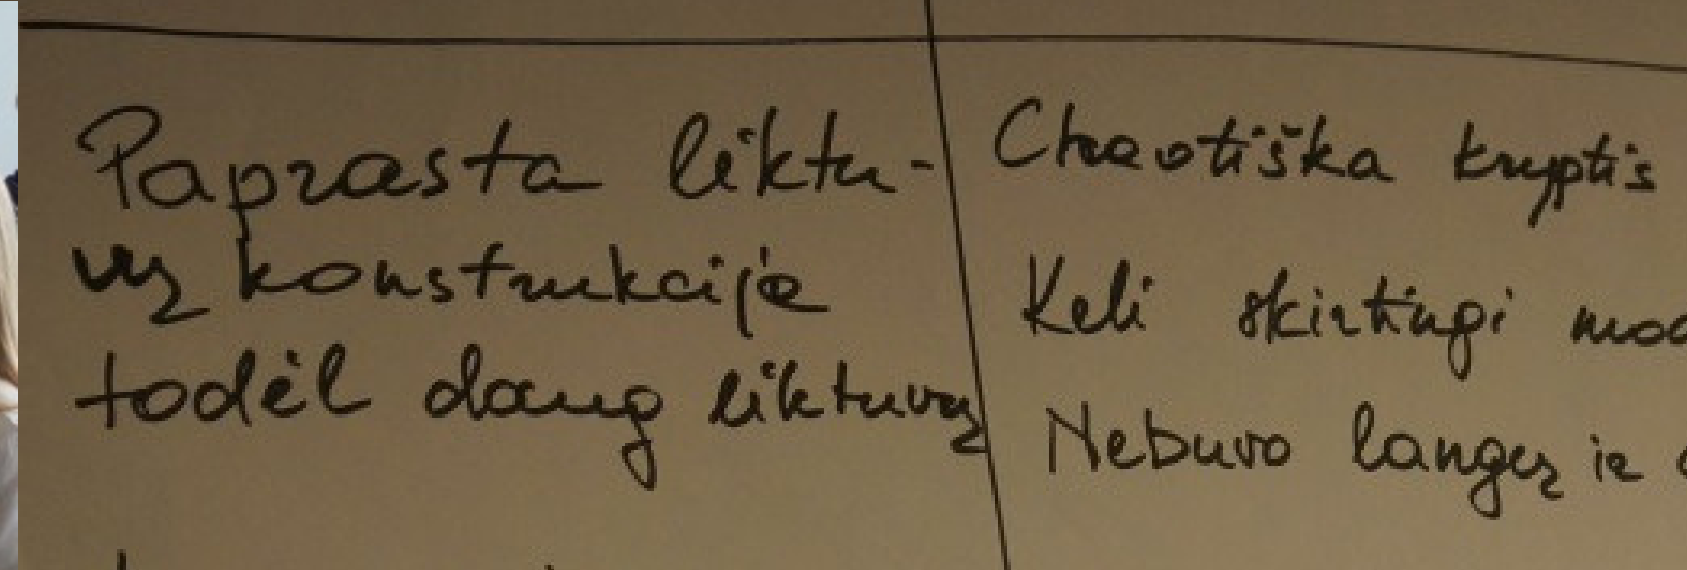 Paprasta liktu-
vų konstrukcija
todėl daug liktuvų
Chaotiška kryptis
Keli skirtingi mod
Nebuvo langų ir